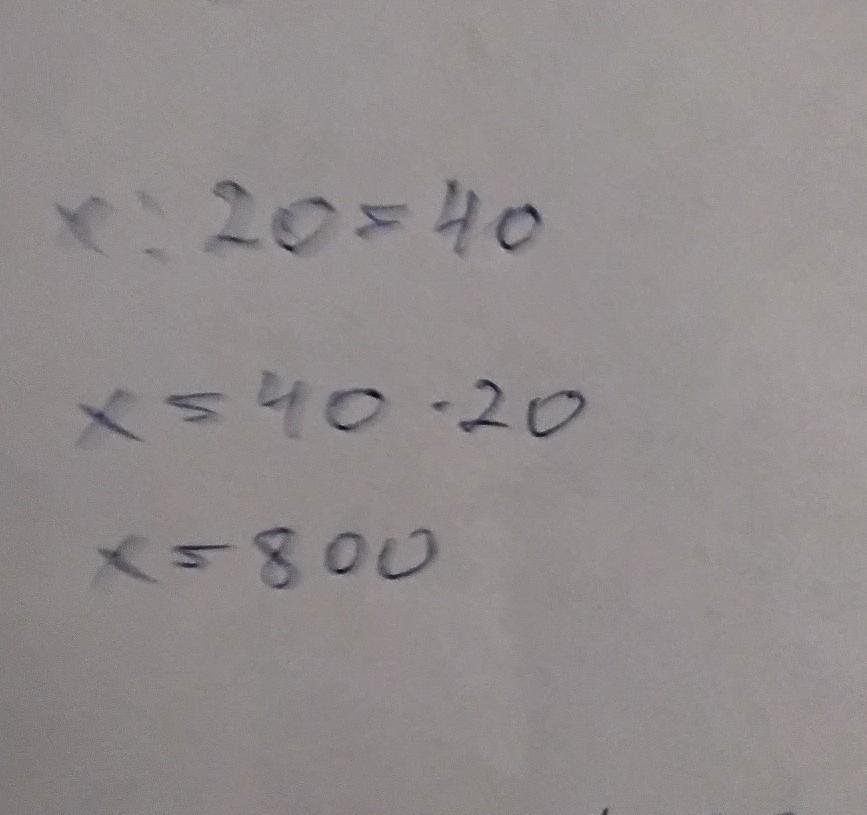 x : 20 = 40
x = 40 · 20
x = 800